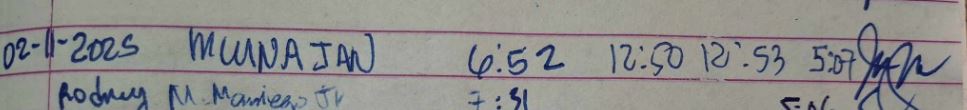 02-11-2025 MUNAJAN 6:52 12:50 12:53 5:07
Rodney M. Jr 7:31